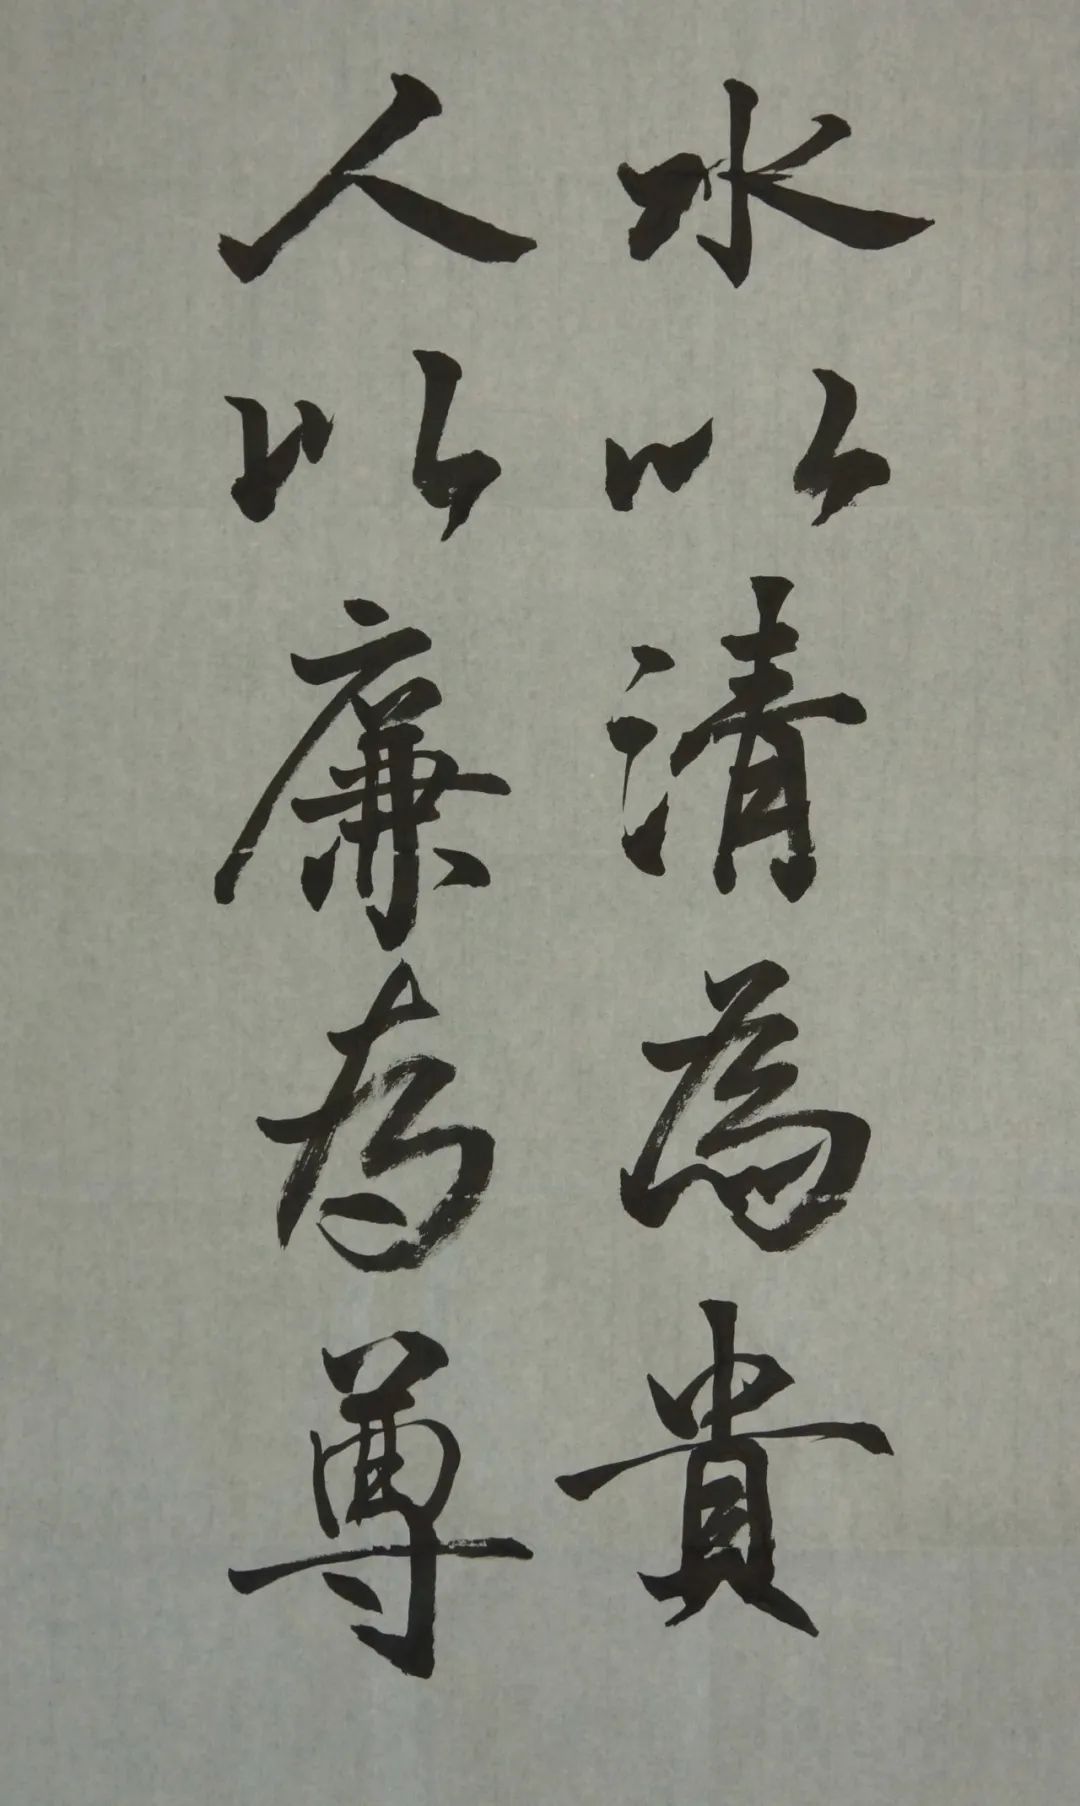 水以清為貴
人以廉為尊